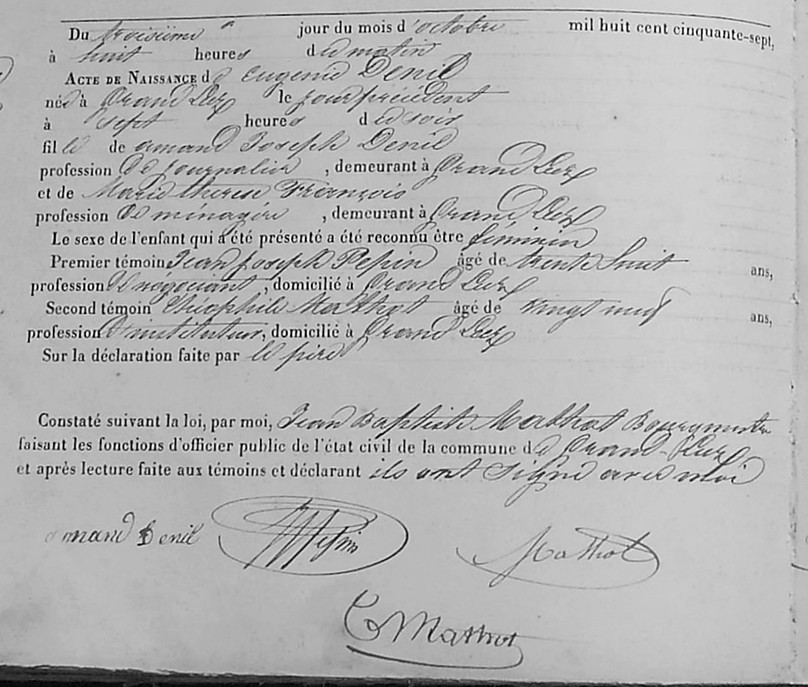 Du troisième jour du mois d'octobre mil huit cent cinquante-sept,
à huit heures du matin
ACTE DE NAISSANCE de Eugenie Denil
née à Grand Leez le jour précédent
à sept heures du soir
fille de amand Joseph Denil
profession de journalier, demeurant à Grand Leez
et de Marie therese François
profession de ménagère, demeurant à Grand Leez
Le sexe de l'enfant qui a été présenté a été reconnu être féminin
Premier témoin Jean joseph Pepin âgé de trente huit ans,
profession de negociant, domicilié à Grand Leez
Second témoin Théophile Mathot âgé de vingt neuf ans,
profession d'instituteur, domicilié à Grand Leez
Sur la déclaration faite par le père
Constaté suivant la loi, par moi, Jean Baptiste Mathot Bourgmestre
faisant les fonctions d'officier public de l'état civil de la commune de Grand-Leez
et après lecture faite aux témoins et déclarant ils ont signé avec moi
amand Denil Pepin Mathot
Mathot